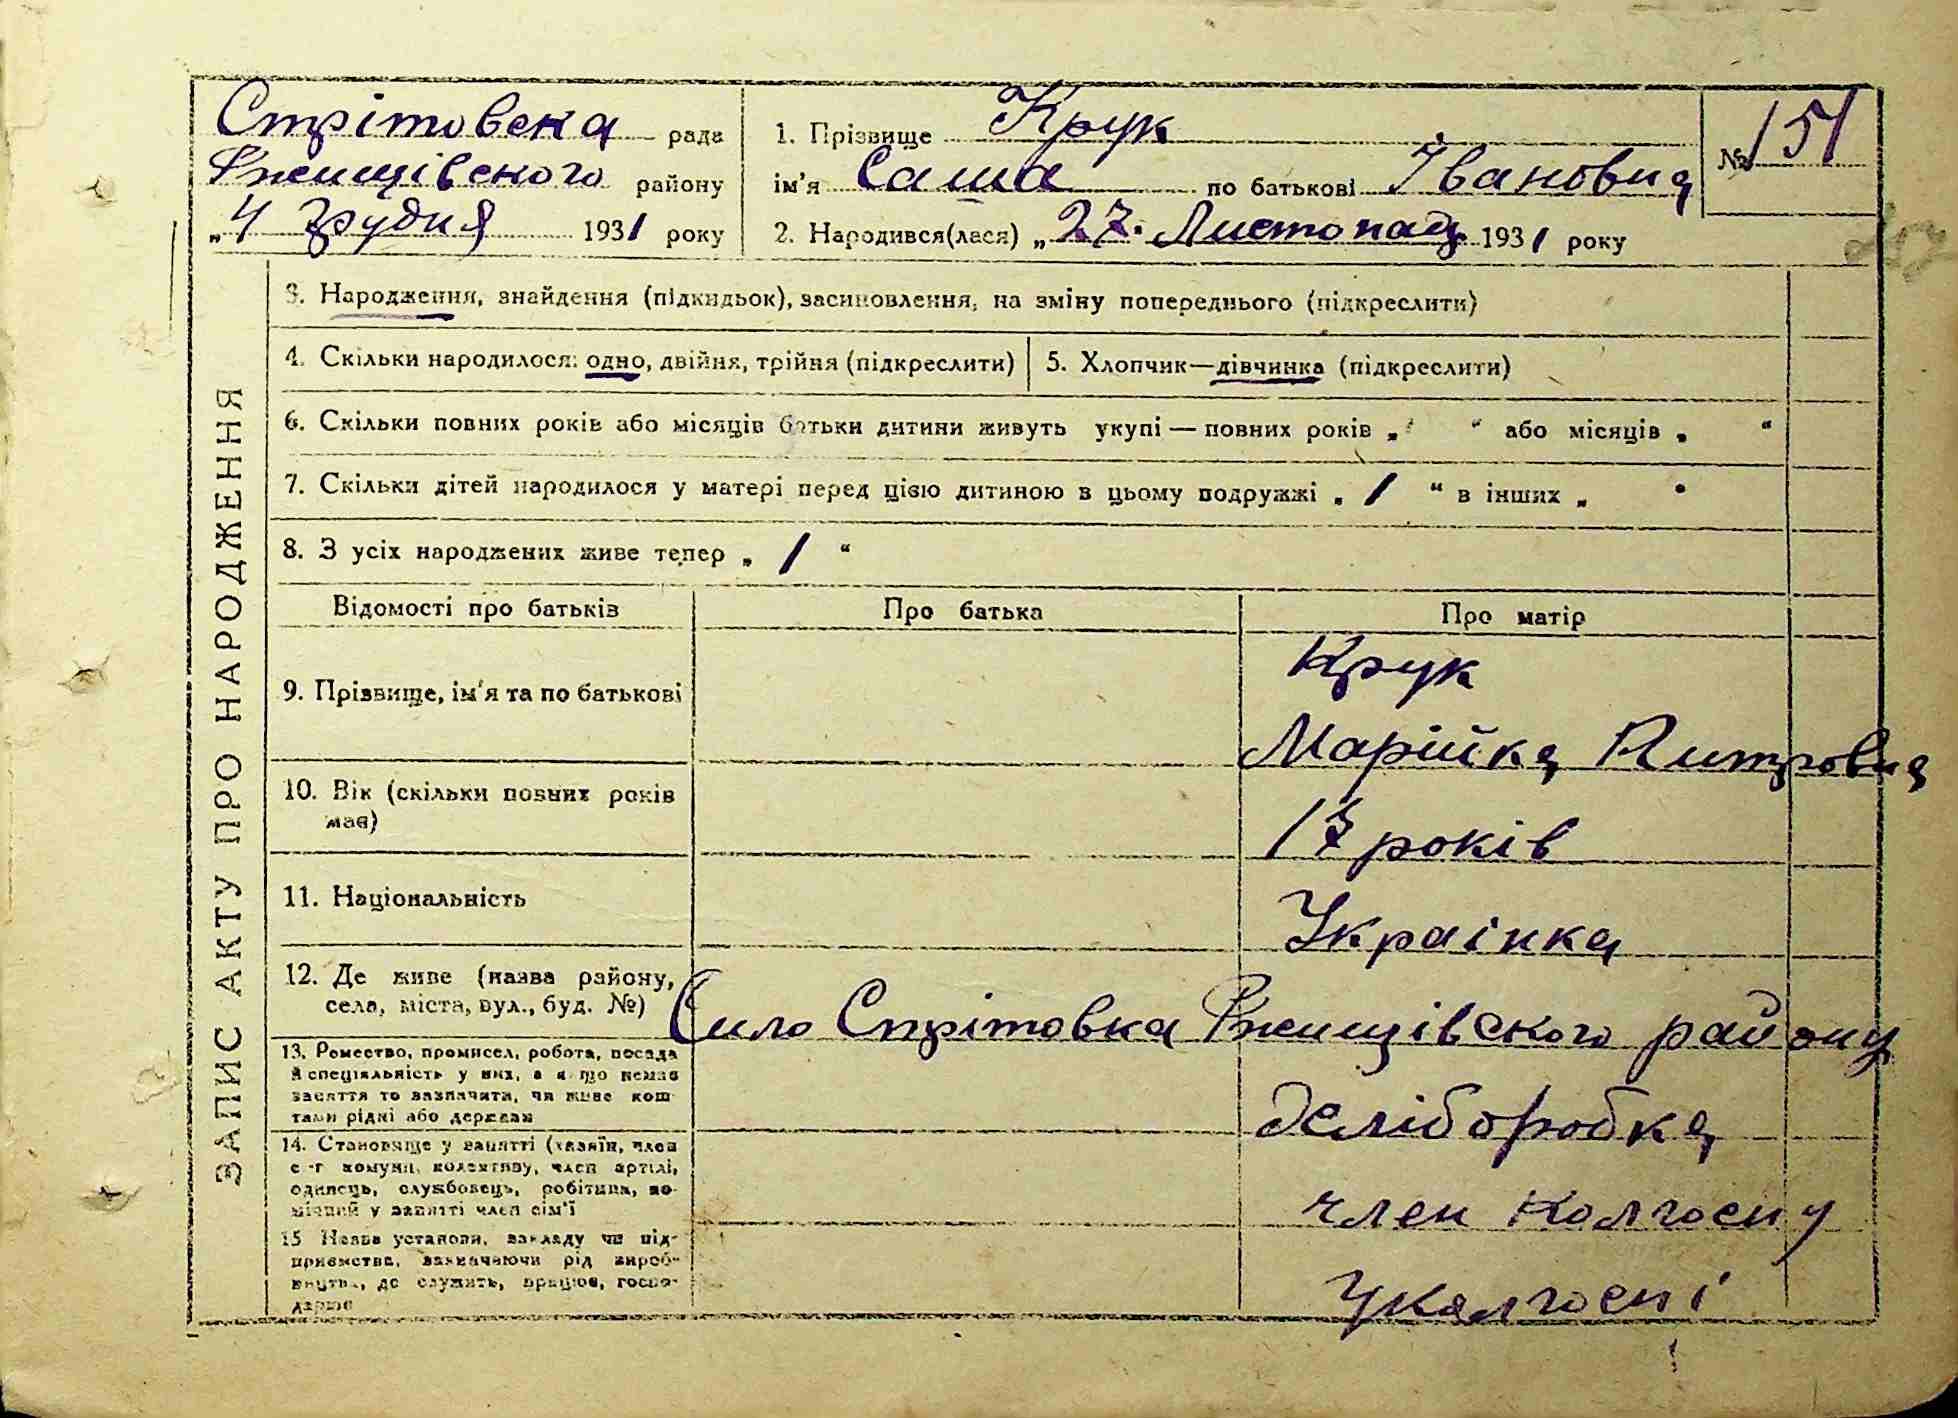 Стрітовска рада
Ржищівского району
„4 Грудня 1931 року
1. Прізвище Крук
ім’я Саша по батькові Івановна
2. Народився(лася) „27. Листопад 1931 року
№ 151
ЗАПИС АКТУ ПРО НАРОДЖЕННЯ
3. Народження, знайдення (підкидьок), засиновлення, на зміну попереднього (підкреслити)
4. Скільки народилося: одно, двійня, трійня (підкреслити)
5. Хлопчик—дівчинка (підкреслити)
6. Скільки повних років або місяців батьки дитини живуть укупі — повних років „ “ або місяців „ “
7. Скільки дітей народилося у матері перед цією дитиною в цьому подружжі „ 1 “ в інших „ “
8. З усіх народжених живе тепер „ 1 “
Відомості про батьків Про батька Про матір
9. Прізвище, ім’я та по батькові
Крук
Марійка Дмитровна
10. Вік (скільки повних років
має)
17 років
11. Національність
Украінка
12. Де живе (назва району,
села, міста, вул., буд. №)
Село Стрітовка Ржищівского району
13. Ремество, промисел, робота, посада
й спеціяльність у них, а якщо немає
заняття то зазначити, чи живе кош-
тами рідні або держави
Хліборобка
14. Становище у занятті (хазяїн, член
с.-г комуни, колективу, член артілі,
одинець, службовець, робітник, по-
мічний у занятті член сім’ї
член Колгоспу
15 Назва установи, закладу чи під-
приємства, зазначаючи рід вироб-
ництва, де служить, працює, госпо-
дарює
У колгоспі